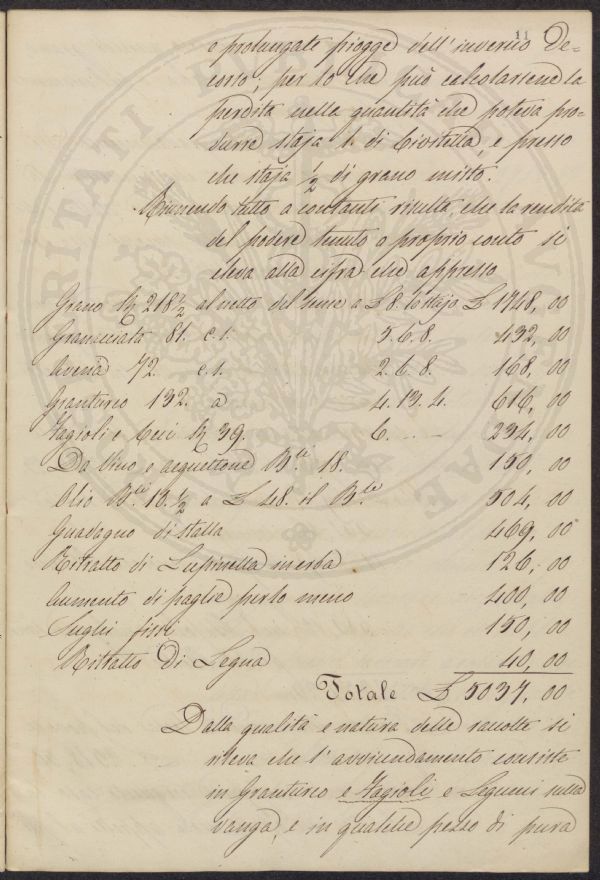 11
e prolungate piogge dell'inverno De=
corso; per lo che può calcolarsene la
perdita nella quantità che poteva pro=
durre staja 1. di Civitella, e presso
che staja ½ di grano misto.
Riunendo tutto a contanti risulta, che la rendita
del podere tenuto a proprio conto si
eleva alla cifra che appresso
Grano 218½ al netto del seme a £ 8. lo stajo £ 1748,00
Granaciata 81. c.s. 5.6.8. 432,00
Avena 72. c.s. 2.6.8. 168,00
Granturco 132. a 4.13.4. 616,00
Fagioli e Ceci 39. 6. .. - 234,00
Da Vino e acquettone B.li 18. 150,00
Olio B.li 13.½ a £ 48. il B.le 504,00
Guadagno di stalla 469,00
Ritratto di Lupinella in erba 126,00
Aumento di paglie per lo meno 400,00
Sughi fissi 150,00
Ritratto Di Legna 40,00
Totale £ 5037,00
Dalla qualità e natura delle raccolte si
rileva che l'avvicendamento consiste
in Granturco e Fagioli e Legumi nella
vanga, e in qualche pezzo di pura